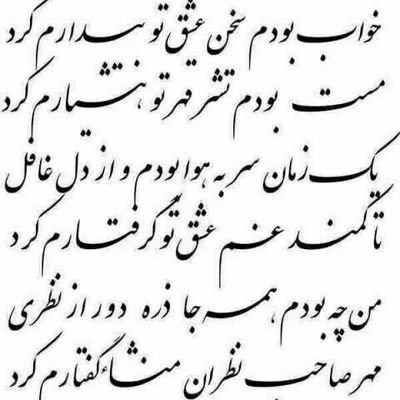 خواب بودم سخن عشق تو بیدارم کرد
مست بودم تشر قهر تو هشیارم کرد
یک زمان سر به هوا بودم و از دل غافل
تا کمند غم عشق تو گرفتارم کرد
من چه بودم همه جا ذره دور از نظری
مهر صاحب نظران منشاء گفتارم کرد